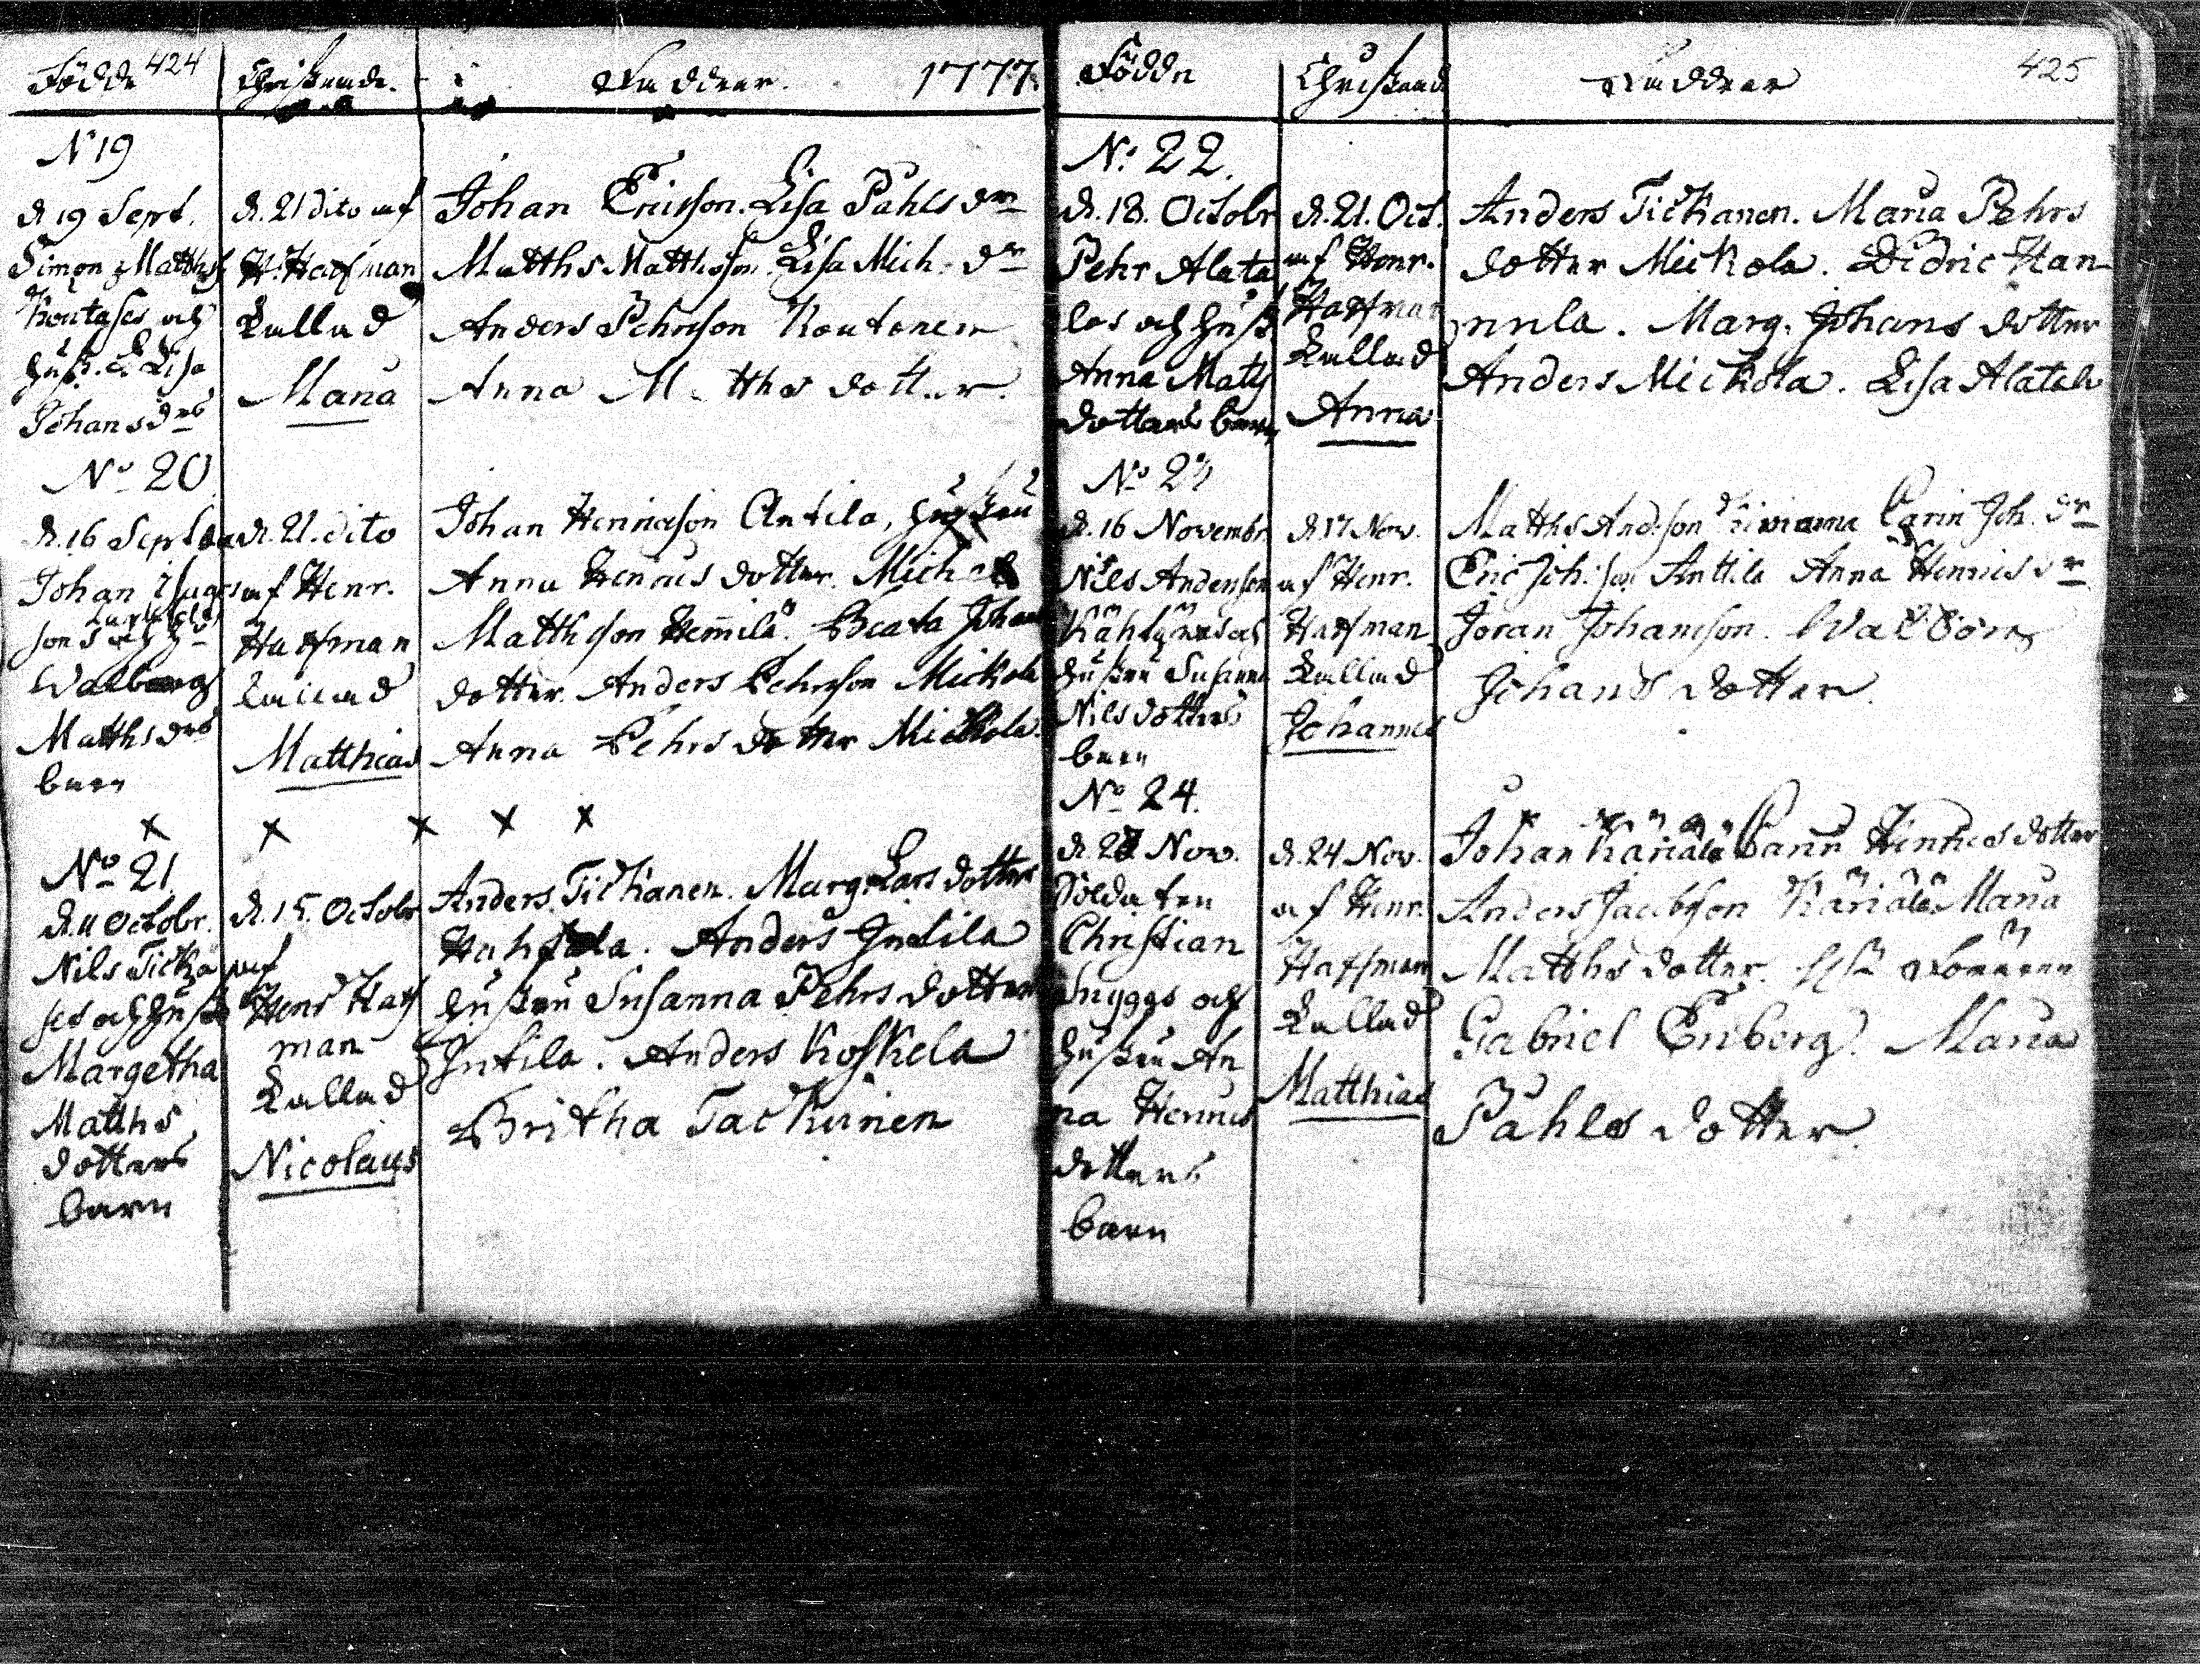 Födde 424
Christnade.
Faddrar. 1777.
N 19
d. 19 Sept.
Simon Matths
Koutases och
Hust. Lisa
Johans drs
d. 21 dito af
H. Haffman
Kallad
Maria
Johan Ericsson. Lisa Påhls dr
Matths Matthsson. Lisa Mich. dr
Anders Pehrsson Koutonen
Anna Matths dotter.
No 20
d. 16 Septbr
Johan
sons och
Walborg
Matths drs
barn
d. 21. dito
af Henr.
Haffman
kallad
Matthias
Johan Henricsson Antila, hustru
Anna Henrics dotter. Michel
Matthsson Hemmilä. Beata Johans
dotter. Anders Pehrsson Mickola
Anna Pehrs dotter Mickola.
x x x x x
No 21.
d. 11 Octobr.
Nils Ticka
ses och hustr
Margetha
Matths
dotters
barn
d. 15. Octobr
af
Henr Haff
man
Kallad
Nicolaus
Anders Tickanen. Marg. Lars dotter
Anders Intila
hustru Susanna Pehrs dotter
Intila. Anders Koskela
Britha Tackuinen
Födde
Christnad
Faddrar
425
N: 22.
d. 18. Octobr
Pehr Alata
los och hust.
Anna Matts
dotters barn
d. 21. Oct.
af Henr.
Haffman
Kallad
Anna
Anders Tickanen. Maria Pehrs
dotter Mickola. Didric Han
nula. Marg. Johans dotter
Anders Mickola. Lisa Alatalo
No 23
d. 16 Novembr.
Nils Andersson
och
hustru Susanna
Nils dotters
barn
d. 17 Nov.
af Henr.
Haffman
Kallad
Johannes
Matths And.son Carin Joh. dr
Eric Joh.son Antila Anna Henrics dr
Jöran Johansson. Walborg
Johans dotter.
No 24.
d. 23 Nov.
Soldaten
Christian
Snyggs och
hustru An
na Henrics
dotters
barn
d. 24 Nov.
af Henr.
Haffman
Kallad
Matthias
Johan Käriälä Carin Henrics dotter
Anders Jacobson Käriälä Maria
Matths dotter.
Gabriel Enberg. Maria
Påhls dotter.